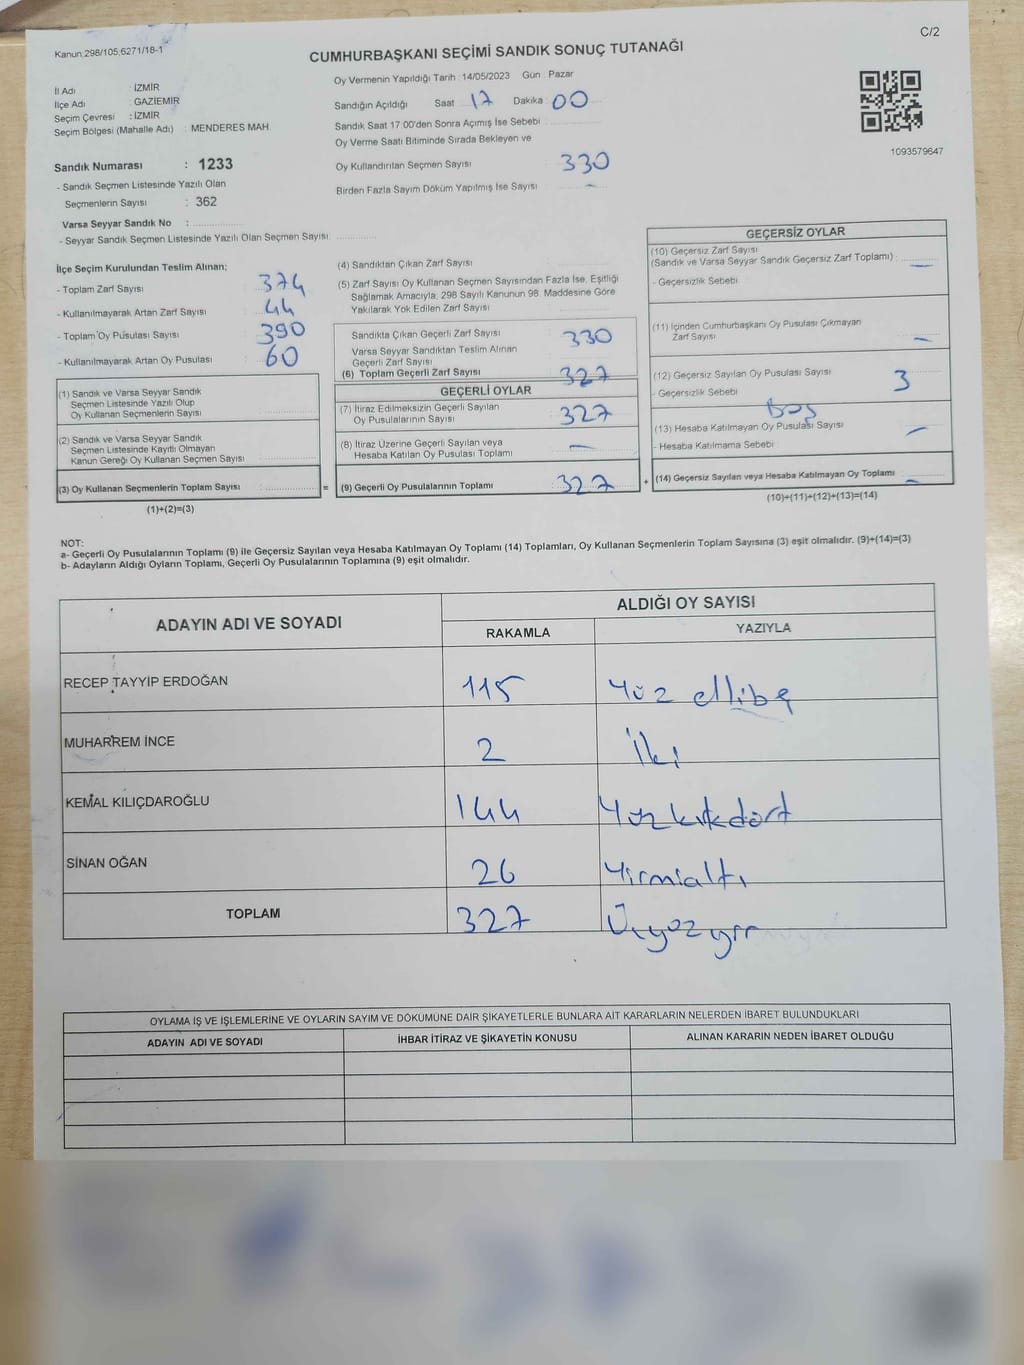 C/2
Kanun:298/105,6271/18-1
CUMHURBAŞKANI SEÇİMİ SANDIK SONUÇ TUTANAĞI
İl Adı : İZMİR
İlçe Adı GAZİEMİR
Seçim Çevresi : İZMİR
Seçim Bölgesi (Mahalle Adı) : MENDERES MAH
Sandık Numarası : 1233
- Sandık Seçmen Listesinde Yazılı Olan
Seçmenlerin Sayısı : 362
Varsa Seyyar Sandık No :
- Seyyar Sandık Seçmen Listesinde Yazılı Olan Seçmen Sayısı:
Oy Vermenin Yapıldığı Tarih : 14/05/2023 Gün : Pazar
Sandığın Açıldığı Saat 17 Dakika 00
Sandık Saat 17:00'den Sonra Açımış İse Sebebi
Oy Verme Saati Bitiminde Sırada Bekleyen ve
Oy Kullandırılan Seçmen Sayısı 330
Birden Fazla Sayım Döküm Yapılmış İse Sayısı –
1093579647
İlçe Seçim Kurulundan Teslim Alınan;
- Toplam Zarf Sayısı 374
- Kullanılmayarak Artan Zarf Sayısı 44
- Toplam Oy Pusulası Sayısı 390
- Kullanılmayarak Artan Oy Pusulası 60
(1) Sandık ve Varsa Seyyar Sandık
Seçmen Listesinde Yazılı Olup
Oy Kullanan Seçmenlerin Sayısı
(2) Sandık ve Varsa Seyyar Sandık
Seçmen Listesinde Kayıtlı Olmayan
Kanun Gereği Oy Kullanan Seçmen Sayısı
(3) Oy Kullanan Seçmenlerin Toplam Sayısı =
(1)+(2)=(3)
(4) Sandıktan Çıkan Zarf Sayısı
(5) Zarf Sayısı Oy Kullanan Seçmen Sayısından Fazla İse, Eşitliği
Sağlamak Amacıyla, 298 Sayılı Kanunun 98. Maddesine Göre
Yakılarak Yok Edilen Zarf Sayısı
Sandıkta Çıkan Geçerli Zarf Sayısı 330
Varsa Seyyar Sandıktan Teslim Alınan
Geçerli Zarf Sayısı
(6) Toplam Geçerli Zarf Sayısı 327
GEÇERLİ OYLAR
(7) İtiraz Edilmeksizin Geçerli Sayılan
Oy Pusulalarının Sayısı 327
(8) İtiraz Üzerine Geçerli Sayılan veya
Hesaba Katılan Oy Pusulası Toplamı –
(9) Geçerli Oy Pusulalarının Toplamı 327 +
GEÇERSİZ OYLAR
(10) Geçersiz Zarf Sayısı
(Sandık ve Varsa Seyyar Sandık Geçersiz Zarf Toplamı) : –
- Geçersizlik Sebebi
(11) İçinden Cumhurbaşkanı Oy Pusulası Çıkmayan
Zarf Sayısı –
(12) Geçersiz Sayılan Oy Pusulası Sayısı 3
- Geçersizlik Sebebi Boş
(13) Hesaba Katılmayan Oy Pusulası Sayısı –
- Hesaba Katılmama Sebebi
(14) Geçersiz Sayılan veya Hesaba Katılmayan Oy Toplamı –
(10)+(11)+(12)+(13)=(14)
NOT:
a- Geçerli Oy Pusulalarının Toplamı (9) ile Geçersiz Sayılan veya Hesaba Katılmayan Oy Toplamı (14) Toplamları, Oy Kullanan Seçmenlerin Toplam Sayısına (3) eşit olmalıdır. (9)+(14)=(3)
b- Adayların Aldığı Oyların Toplamı, Geçerli Oy Pusulalarının Toplamına (9) eşit olmalıdır.
ADAYIN ADI VE SOYADI ALDIĞI OY SAYISI
RAKAMLA YAZIYLA
RECEP TAYYİP ERDOĞAN 115 Yüz ellibeş
MUHARREM İNCE 2 İki
KEMAL KILIÇDAROĞLU 144 Yüz kırkdört
SİNAN OĞAN 26 Yirmialtı
TOPLAM 327 Üçyüz
OYLAMA İŞ VE İŞLEMLERİNE VE OYLARIN SAYIM VE DÖKÜMÜNE DAİR ŞİKAYETLERLE BUNLARA AİT KARARLARIN NELERDEN İBARET BULUNDUKLARI
ADAYIN ADI VE SOYADI İHBAR İTİRAZ VE ŞİKAYETİN KONUSU ALINAN KARARIN NEDEN İBARET OLDUĞU